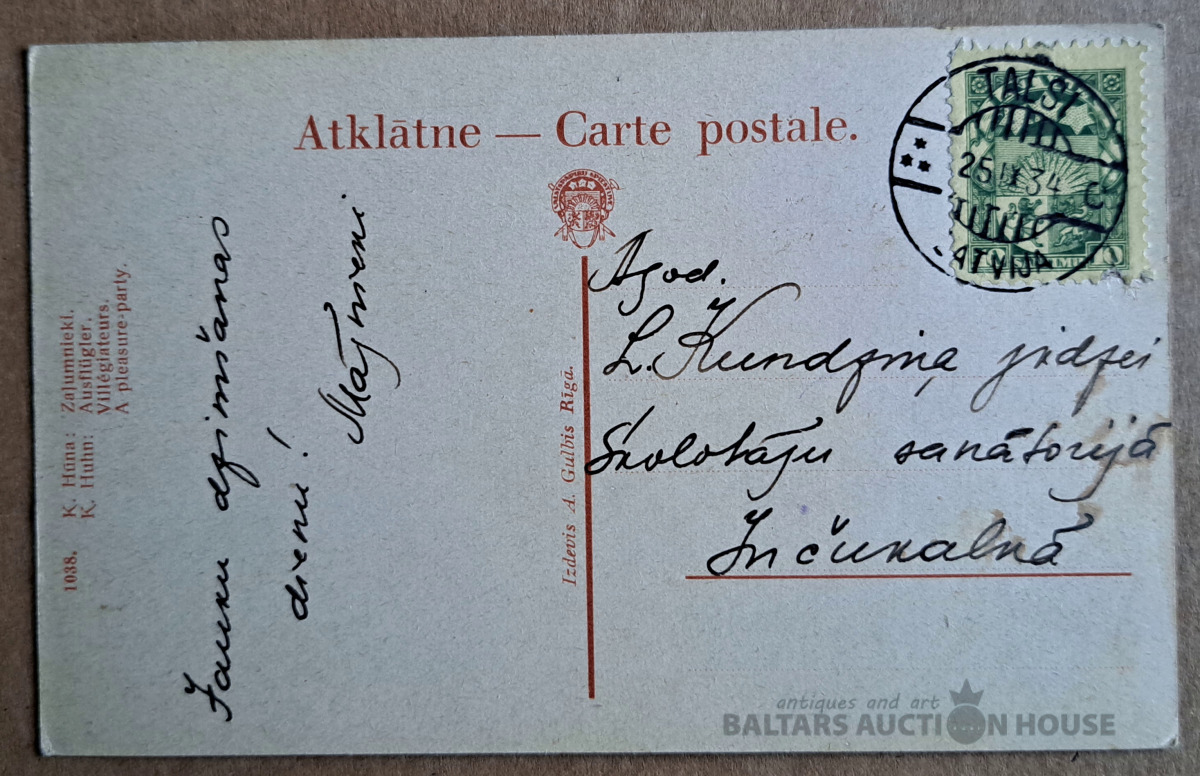 Atklātne — Carte postale.
TALSI
25 IX 34 C
LATVIJA
Agod.
L. Kundziņa jkdzei
Skolotāju sanātorijā
Inčukalnā
Jauku dzimšanas
dienu!
Mājnieki
1038. K. Hūna: Zaļumnieki.
K. Huhn: Ausflügler.
Villégiateurs.
A pleasure-party.
Izdevis A. Gulbis Rīgā.
antiques and art
BALTARS AUCTION HOUSE